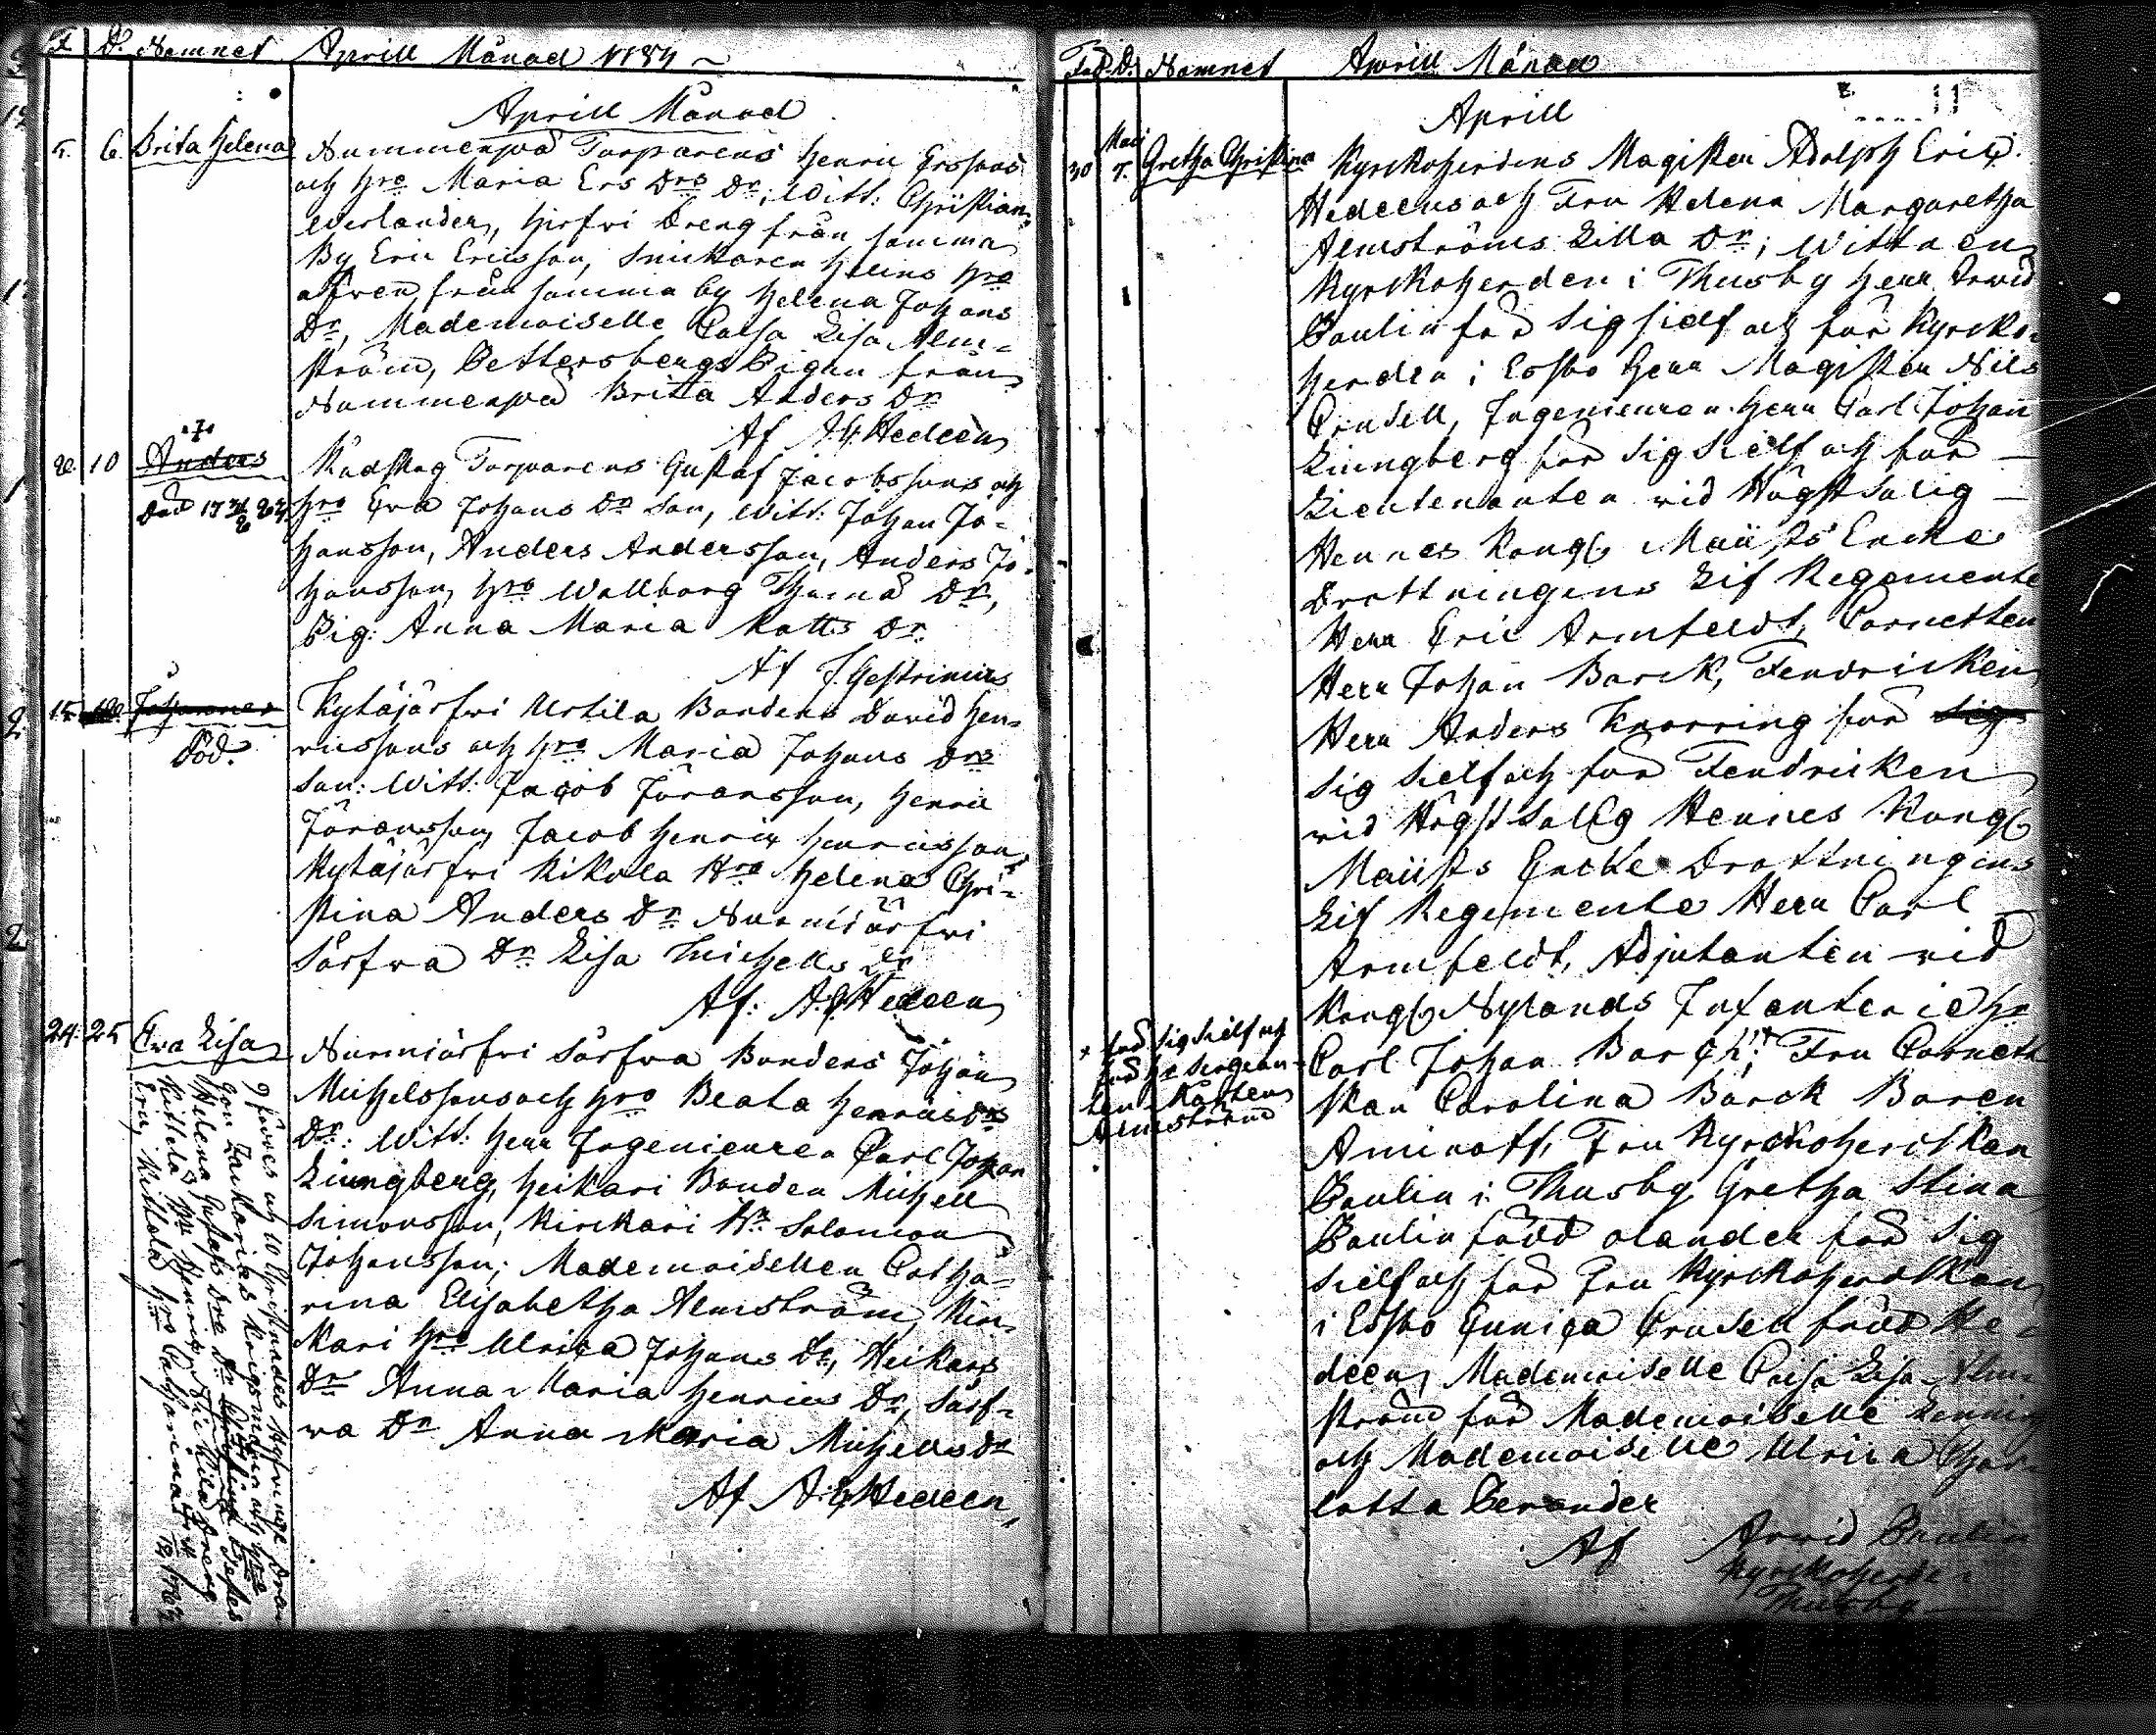 F. D. Namnet Aprill Månad 1784
Aprill Månad
5. 6. Brita Helena Nummenpää Torparens Henric Erssons
och Hro Maria Ers Drs Dr; Witt: Christian
Werlander, Hirfvi Dreng från samma
By Eric Ericsson, Snickaren Hro
äfven från samma by Helena Johans
Dr, Mademoiselle Caisa Lisa Alm-
ström, Pettersbergs Pigan från
Nummenpää Brita Anders Dr
Af A. E. Hedeen
8. 10 Anders Rådskog Torparens Gustaf Jacobssons och
död Hro Eva Johans Dr Son, Witt: Johan Jo-
hansson, Anders Andersson, Anders Jo-
hansson, Hro Wallborg Thomæ Dr,
Pig: Anna Maria Matts Dr
Af J. Gestrinius
15. Johannes Kytäjärfvi Urtila Bondens David Hen-
Död. ricssons och Hro Maria Johans Drs
Son: Witt: Jacob Göransson, Henric
Göransson, Jacob Henric Henricsson,
Kytäjärfvi Kikola Hro Helena Chri-
stina Anders Dr Nurmijärfvi
Särfva Dr Lisa Michells Dr
Af: A. E. Hedeen
24. 25 Eva Lisa Nurmijärfvi Särfva Bondens Johan
Michelssons och Hro Beata Henrics Drs
Dr: Witt: Herr Ingenieuren Carl Johan
Liungberg, Heikari Bonden Michell
Simonsson, Kirckari Hr Salomon
Johansson; Mademoisellen Catha-
rina Elisabetha Almström, Kirc-
kari Hro Ulrica Johans Dr, Heikari
Dr Anna Maria Henrics Dr, Särf-
va Dr Anna Maria Michells Dr
Af A. E. Hedeen
Föd. D. Namnet Aprill Månad
Aprill
30 Maij 7. Gretha Christina Kyrkoherdens Magister Adolph Eric
Hedeens och Fru Helena Margaretha
Almströms Lilla Dr; Wittnen
Kyrkoherden i Thusby Herr Arvid
Paulin för Sig sielf och för Kyrcko-
herden i Esbo Herr Magister Nils
Crusell, Ingenieuren Herr Carl Johan
Liungberg för Sig Sielf och för
Lieutenanten vid Högst Salig
Hennes Kongl Maijts Encke
Drottningens Lif Regemente
Herr Eric Armfeldt, Cornetten
Herr Johan Barck, Fendricken
Herr Anders Knorring för
Sig Sielf och för Fendricken
vid Högst Salig Hennes Kongl
Maijts Encke Drottningens
Lif Regemente Herr Carl
Armfeldt, Adjutanten vid
Kongl Nylands Infanterie Hr
Carl Johan Barck; Fru Cornett-
skan Carolina Barck Boren
Aminoff, Fru Kyrckoherdskan
Paulin i Thusby Gretha Stina
Paulin född Olander för Sig
Sielf och för Fru Kyrckoherdskan
i Esbo Crusell född He-
deen, Mademoiselle Caisa Lisa Alm-
ström för Mademoiselle
och Mademoiselle Ulrica Char-
lotta Cerander
Af Arvid Paulin
Kyrckoherde i
Thusby
för Sig Sielf och
för Hr Sergean-
ten
Almström